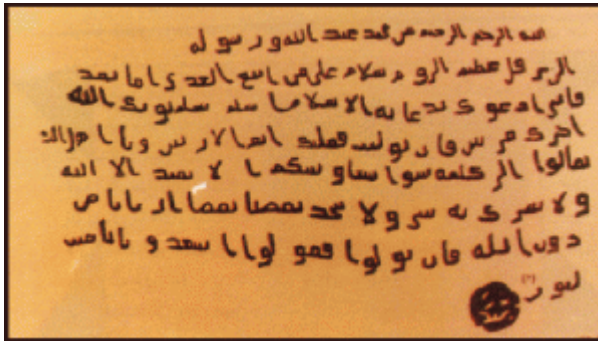 الله الرحمن الرحيم من محمد عبد الله ورسوله
الى هرقل عظيم الروم سلام على من اتبع الهدى اما بعد
فانى ادعوك بدعاية الاسلام اسلم تسلم يوتك الله
اجرك مرتين فان توليت فعليك اثم الاريسين ويا اهل الك
تعالوا الى كلمة سوا بيننا وبينكم ا لا نعبد الا الله
ولا نشرك به شيا ولا يتخذ بعضنا بعضا اربابا من
دون الله فان تولوا فقولوا اشهدوا بانا مس
لمون